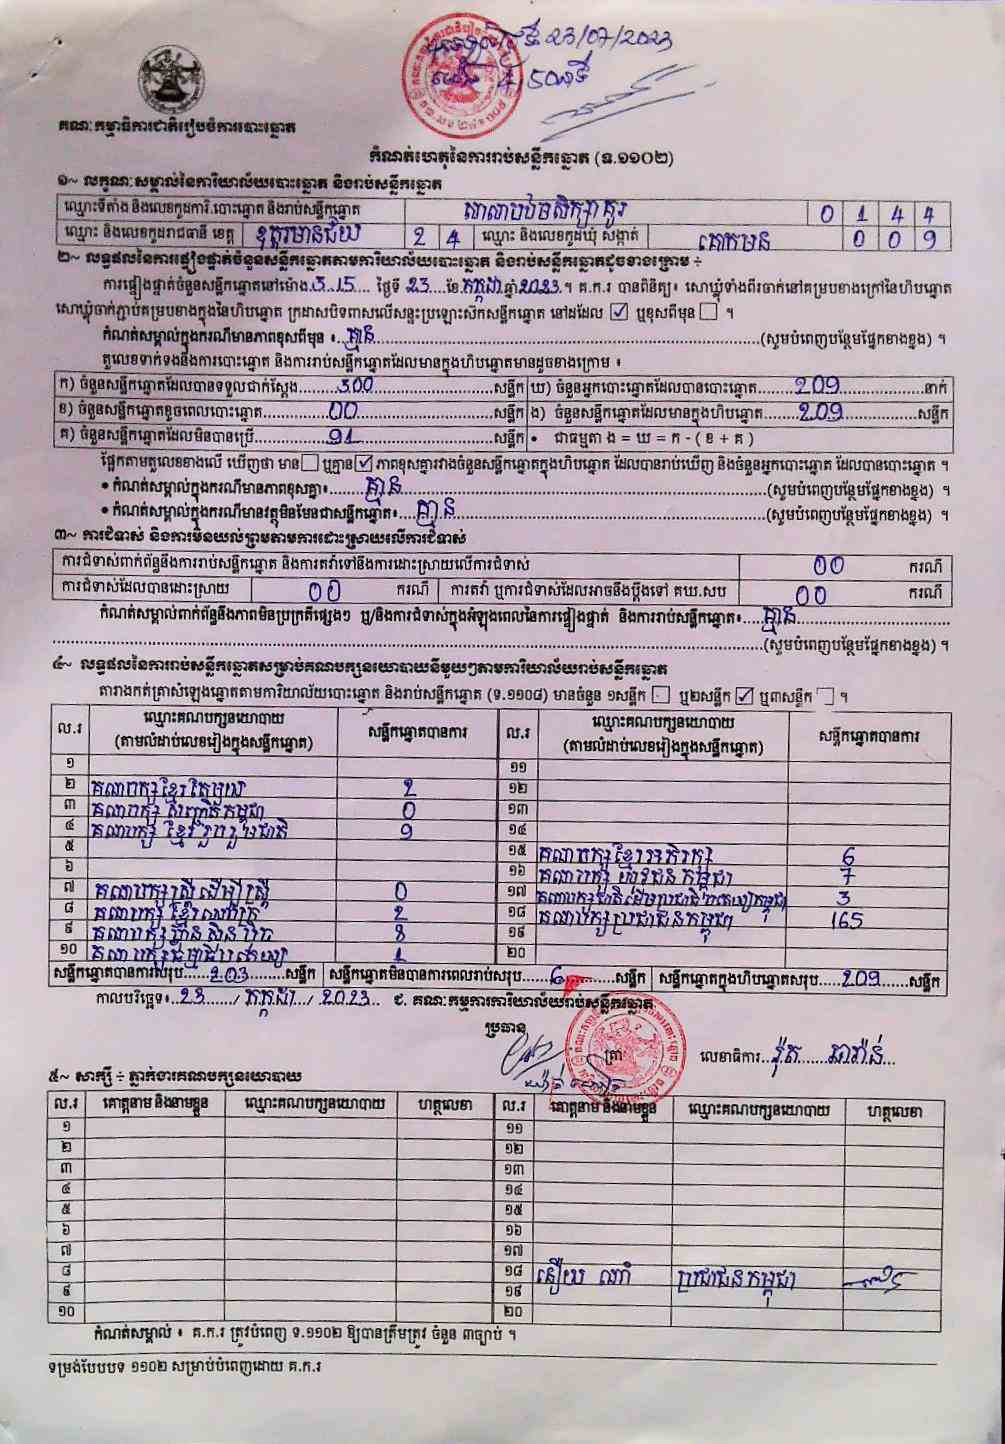 ថ្ងៃទី 23/07/2023
គណៈកម្មាធិការជាតិរៀបចំការបោះឆ្នោត
កំណត់ហេតុនៃការរាប់សន្លឹកឆ្នោត (ទ.១១០២)
១~ លក្ខណៈសម្គាល់នៃការិយាល័យបោះឆ្នោត និងរាប់សន្លឹកឆ្នោត
ឈ្មោះទីតាំង និងលេខកូដការិ.បោះឆ្នោត និងរាប់សន្លឹកឆ្នោត 0 1 4 4
ឈ្មោះ និងលេខកូដរាជធានី ខេត្ត ឧត្តរមានជ័យ 2 4 ឈ្មោះ និងលេខកូដឃុំ សង្កាត់ គោកមន 0 0 9
២~ លទ្ធផលនៃការផ្ទៀងផ្ទាត់ចំនួនសន្លឹកឆ្នោតតាមការិយាល័យបោះឆ្នោត និងរាប់សន្លឹកឆ្នោតដូចខាងក្រោម ÷
ការផ្ទៀងផ្ទាត់ចំនួនសន្លឹកឆ្នោតនៅម៉ោង 3:15 ថ្ងៃទី 23 ខែ កក្កដា ឆ្នាំ 2023 ។ គ.ក.រ បានពិនិត្យ៖ សោឃ្លុំទាំងពីរចាក់នៅគម្របខាងក្រៅនៃហិបឆ្នោត
សោឃ្លុំចាក់ភ្ជាប់គម្របខាងក្នុងនៃហិបឆ្នោត ក្រដាសបិទពាសលើសន្ទះប្រឡោះស៊កសន្លឹកឆ្នោត នៅដដែល ☑ ឬខុសពីមុន ☐ ។
កំណត់សម្គាល់ក្នុងករណីមានភាពខុសពីមុន ៖ គ្មាន (សូមបំពេញបន្ថែមផ្នែកខាងខ្នង) ។
តួលេខទាក់ទងនឹងការបោះឆ្នោត និងការរាប់សន្លឹកឆ្នោតដែលមានក្នុងហិបឆ្នោតមានដូចខាងក្រោម ៖
ក) ចំនួនសន្លឹកឆ្នោតដែលបានទទួលជាក់ស្តែង 300 សន្លឹក ឃ) ចំនួនអ្នកបោះឆ្នោតដែលបានបោះឆ្នោត 209 នាក់
ខ) ចំនួនសន្លឹកឆ្នោតខូចពេលបោះឆ្នោត 00 សន្លឹក ង) ចំនួនសន្លឹកឆ្នោតដែលមានក្នុងហិបឆ្នោត 209 សន្លឹក
គ) ចំនួនសន្លឹកឆ្នោតដែលមិនបានប្រើ 91 សន្លឹក • ជាធម្មតា ង = ឃ = ក - ( ខ + គ )
ផ្អែកតាមតួលេខខាងលើ ឃើញថា មាន ☐ ឬគ្មាន ☑ ភាពខុសគ្នារវាងចំនួនសន្លឹកឆ្នោតក្នុងហិបឆ្នោត ដែលបានរាប់ឃើញ និងចំនួនអ្នកបោះឆ្នោត ដែលបានបោះឆ្នោត ។
• កំណត់សម្គាល់ក្នុងករណីមានភាពខុសគ្នា៖ គ្មាន (សូមបំពេញបន្ថែមផ្នែកខាងខ្នង) ។
• កំណត់សម្គាល់ក្នុងករណីមានវត្ថុមិនមែនជាសន្លឹកឆ្នោត៖ គ្មាន (សូមបំពេញបន្ថែមផ្នែកខាងខ្នង) ។
៣~ ការជំទាស់ និងការមិនយល់ព្រមតាមការដោះស្រាយលើការជំទាស់
ការជំទាស់ពាក់ព័ន្ធនឹងការរាប់សន្លឹកឆ្នោត និងការតវ៉ាទៅនឹងការដោះស្រាយលើការជំទាស់ 00 ករណី
ការជំទាស់ដែលបានដោះស្រាយ 00 ករណី ការតវ៉ា ឬការជំទាស់ដែលអាចនឹងប្តឹងទៅ គឃ.សប 00 ករណី
កំណត់សម្គាល់ពាក់ព័ន្ធនឹងភាពមិនប្រក្រតីផ្សេងៗ ឬ/និងការជំទាស់ក្នុងអំឡុងពេលនៃការផ្ទៀងផ្ទាត់ និងការរាប់សន្លឹកឆ្នោត៖ គ្មាន
(សូមបំពេញបន្ថែមផ្នែកខាងខ្នង) ។
៤~ លទ្ធផលនៃការរាប់សន្លឹកឆ្នោតសម្រាប់គណបក្សនយោបាយនីមួយៗតាមការិយាល័យរាប់សន្លឹកឆ្នោត
តារាងកត់ត្រាសំឡេងឆ្នោតតាមការិយាល័យបោះឆ្នោត និងរាប់សន្លឹកឆ្នោត (ទ.១១០៨) មានចំនួន ១សន្លឹក ☐ ឬ២សន្លឹក ☑ ឬ៣សន្លឹក ☐ ។
ល.រ ឈ្មោះគណបក្សនយោបាយ សន្លឹកឆ្នោតបានការ ល.រ ឈ្មោះគណបក្សនយោបាយ សន្លឹកឆ្នោតបានការ
(តាមលំដាប់លេខរៀងក្នុងសន្លឹកឆ្នោត) (តាមលំដាប់លេខរៀងក្នុងសន្លឹកឆ្នោត)
១ ១១
២ គណបក្សខ្មែរតែមួយ 2 ១២
៣ គណបក្ស កម្ពុជា 0 ១៣
៤ គណបក្ស ខ្មែររួបរួមជាតិ 9 ១៤
៥ ១៥ គណបក្សខ្មែរអភិរក្ស 6
៦ ១៦ គណបក្ស យុវជនកម្ពុជា 7
៧ គណបក្សស្ត្រីដើម្បីស្ត្រី 0 ១៧ 3
៨ គណបក្ស ខ្មែរ 2 ១៨ គណបក្សប្រជាជនកម្ពុជា 165
៩ គណបក្ស 8 ១៩
១០ គណបក្សធម្មាធិបតេយ្យ 1 ២០
សន្លឹកឆ្នោតបានការសរុប 203 សន្លឹក សន្លឹកឆ្នោតមិនបានការពេលរាប់សរុប 6 សន្លឹក សន្លឹកឆ្នោតក្នុងហិបឆ្នោតសរុប 209 សន្លឹក
កាលបរិច្ឆេទ៖ 23 / កក្កដា / 2023 ជ. គណៈកម្មការការិយាល័យរាប់សន្លឹកឆ្នោត
ប្រធាន
ត្រា លេខាធិការ
៥~ សាក្សី ÷ ភ្នាក់ងារគណបក្សនយោបាយ
ល.រ គោត្តនាម និងនាមខ្លួន ឈ្មោះគណបក្សនយោបាយ ហត្ថលេខា ល.រ គោត្តនាម និងនាមខ្លួន ឈ្មោះគណបក្សនយោបាយ ហត្ថលេខា
១ ១១
២ ១២
៣ ១៣
៤ ១៤
៥ ១៥
៦ ១៦
៧ ១៧
៨ ១៨ ប្រជាជនកម្ពុជា
៩ ១៩
១០ ២០
កំណត់សម្គាល់ ៖ គ.ក.រ ត្រូវបំពេញ ទ.១១០២ ឱ្យបានត្រឹមត្រូវ ចំនួន ៣ច្បាប់ ។
ទម្រង់បែបបទ ១១០២ សម្រាប់បំពេញដោយ គ.ក.រ